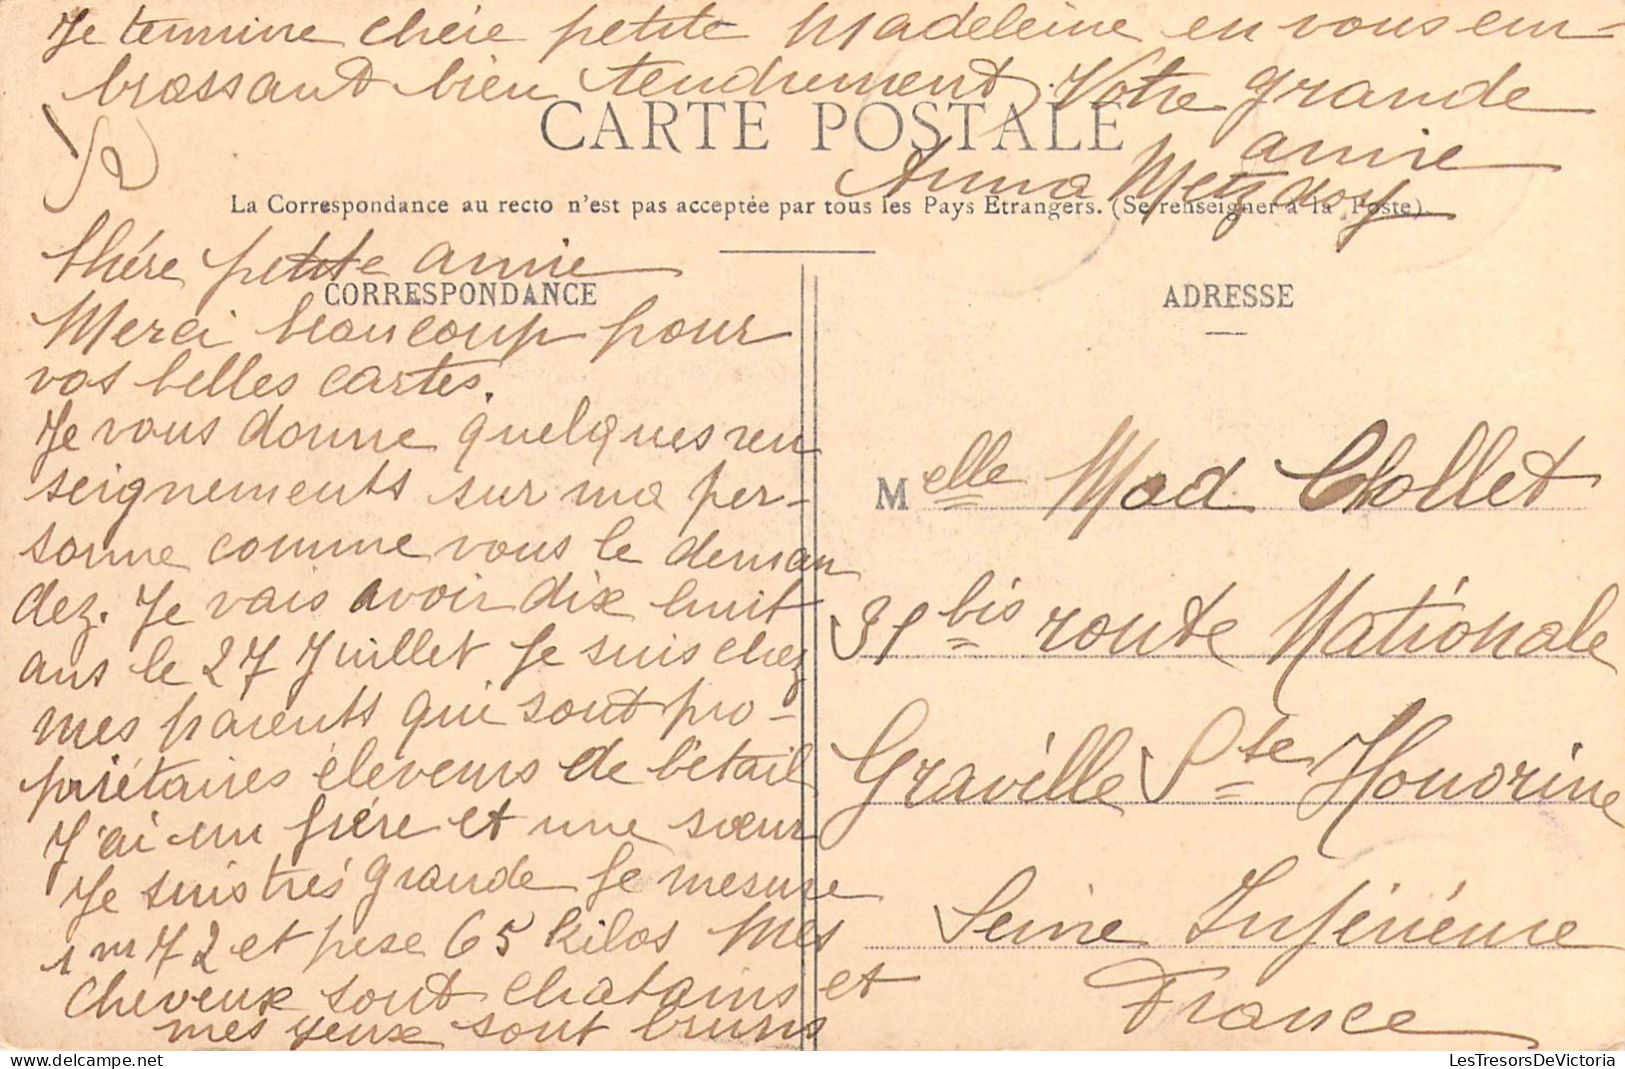 Je termine chére petite Madeleine en vous em-
brassant bien tendrement Votre grande
amie
Anna Metzdorf
CARTE POSTALE
La Correspondance au recto n'est pas acceptée par tous les Pays Etrangers. (Se renseigner à la Poste)
Chére petite amie
CORRESPONDANCE
Merci beaucoup pour
vos belles cartes.
Je vous donne quelques ren
seignements sur ma per-
sonne comme vous le deman
dez. Je vais avoir dix huit
ans le 27 Juillet Je suis chez
mes parents qui sont pro-
priétaires éleveurs de bétail
J'ai un frére et une sœur
Je suis trés grande Je mesure
1m72 et pese 65 kilos Mes
cheveux sont chatains et
mes yeux sont bruns
ADRESSE
Melle Mad Chollet
31 bis route Nationale
Graville Ste Honorine
Seine Inférieure
France
LesTresorsDeVictoria